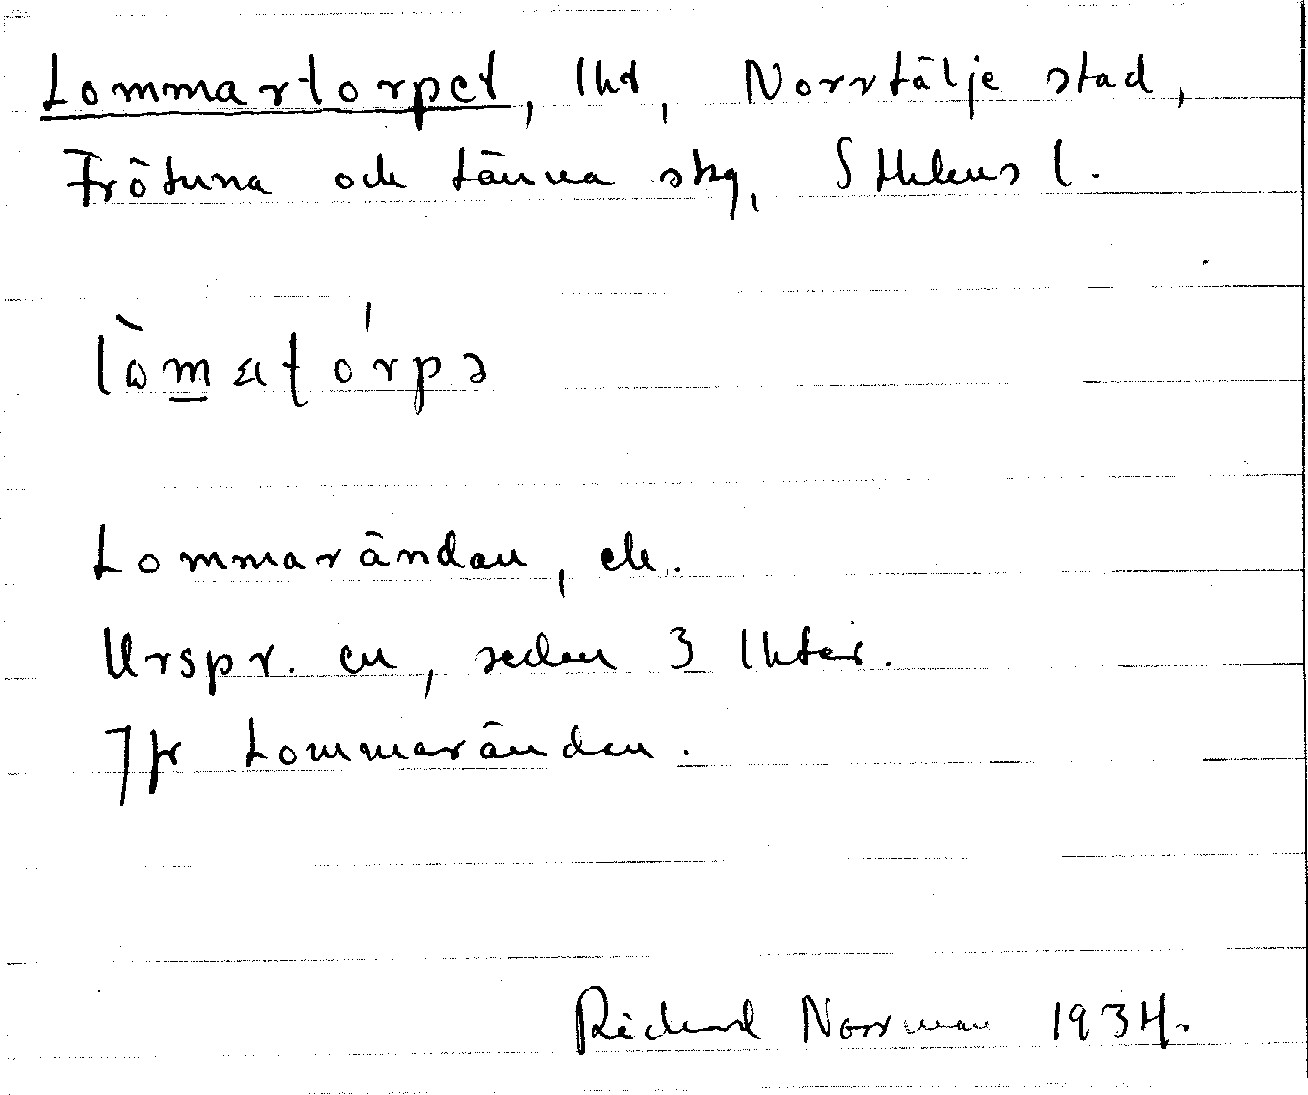 Lommartorpet, lht, Norrtälje stad,
Frötuna och Länna skg, Sthlms l.
lòmatórpə
Lommarändan, ek.
Urspr. en, sedan 3 lhter.
Jfr Lommarändan.
Richard Norrman 1934.